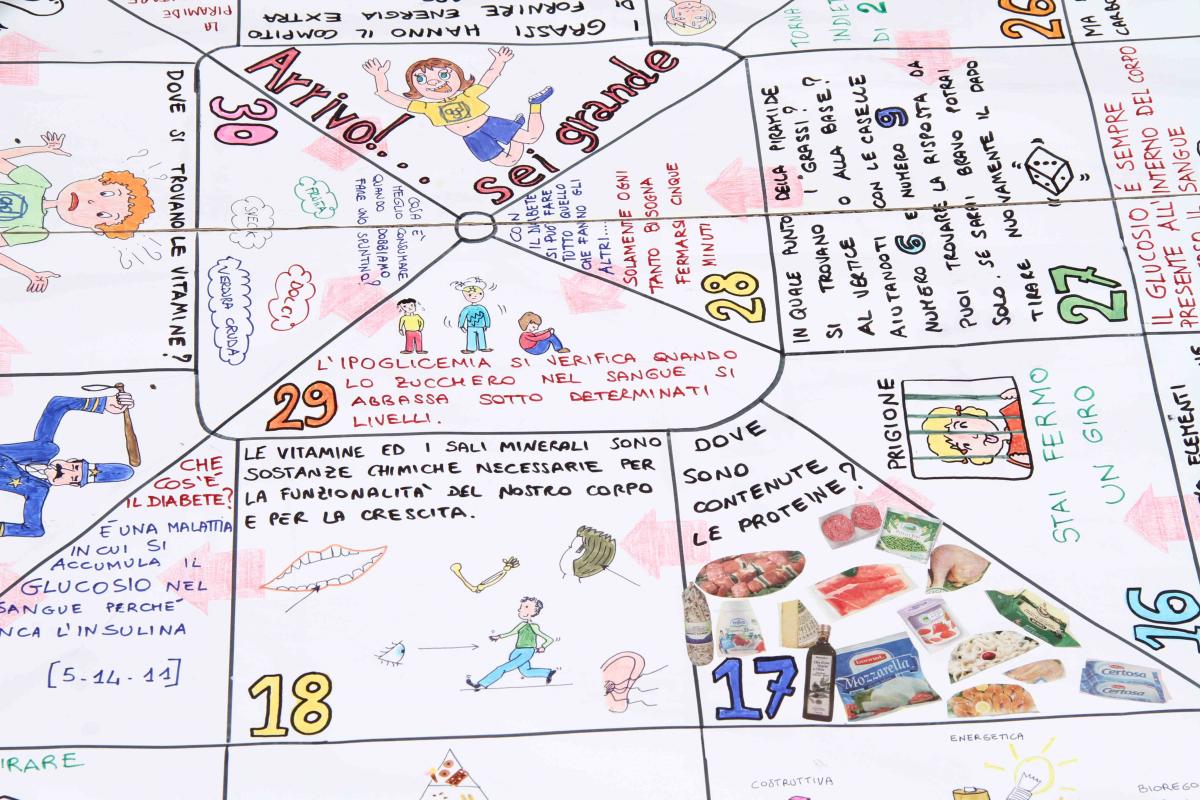 LA
PIRAMIDE
I GRASSI HANNO IL COMPITO
DI FORNIRE ENERGIA EXTRA
TORNA
INDIET
DI 2
26
MA
CARBO
DOVE SI TROVANO LE VITAMINE?
30
Arrivo!...
sei grande
COSA È
MEGLIO CONSUMARE
QUANDO DOBBIAMO
FARE UNO SPUNTINO?
FRUTTA
DOLCI
VERDURA CRUDA
CON
IL DIABETE
SI PUÒ FARE
TUTTO QUELLO
CHE FANNO GLI
ALTRI....
SOLAMENTE OGNI
TANTO BISOGNA
FERMARSI CINQUE
MINUTI
28
IN QUALE PUNTO DELLA PIRAMIDE
SI TROVANO I GRASSI?
AL VERTICE O ALLA BASE?
AIUTANDOTI CON LE CASELLE
NUMERO 6 E NUMERO 9
PUOI TROVARE LA RISPOSTA DA
SOLO. SE SARAI BRAVO POTRAI
TIRARE NUOVAMENTE IL DADO
27
IL GLUCOSIO È SEMPRE
PRESENTE ALL'INTERNO DEL CORPO
SANGUE
L'IPOGLICEMIA SI VERIFICA QUANDO
LO ZUCCHERO NEL SANGUE SI
ABBASSA SOTTO DETERMINATI
LIVELLI.
29
CHE
COS'È
IL DIABETE?
È UNA MALATTIA
IN CUI SI
ACCUMULA IL
GLUCOSIO NEL
SANGUE PERCHÉ
NCA L'INSULINA
[5-14-11]
LE VITAMINE ED I SALI MINERALI SONO
SOSTANZE CHIMICHE NECESSARIE PER
LA FUNZIONALITA' DEL NOSTRO CORPO
E PER LA CRESCITA.
18
DOVE
SONO
CONTENUTE
LE PROTEINE?
Mozzarella
Certosa
Certosa
17
PRIGIONE
STAI FERMO
UN GIRO
16
ELEMENTI
IRARE
COSTRUTTIVA
ENERGETICA
BIOREGO